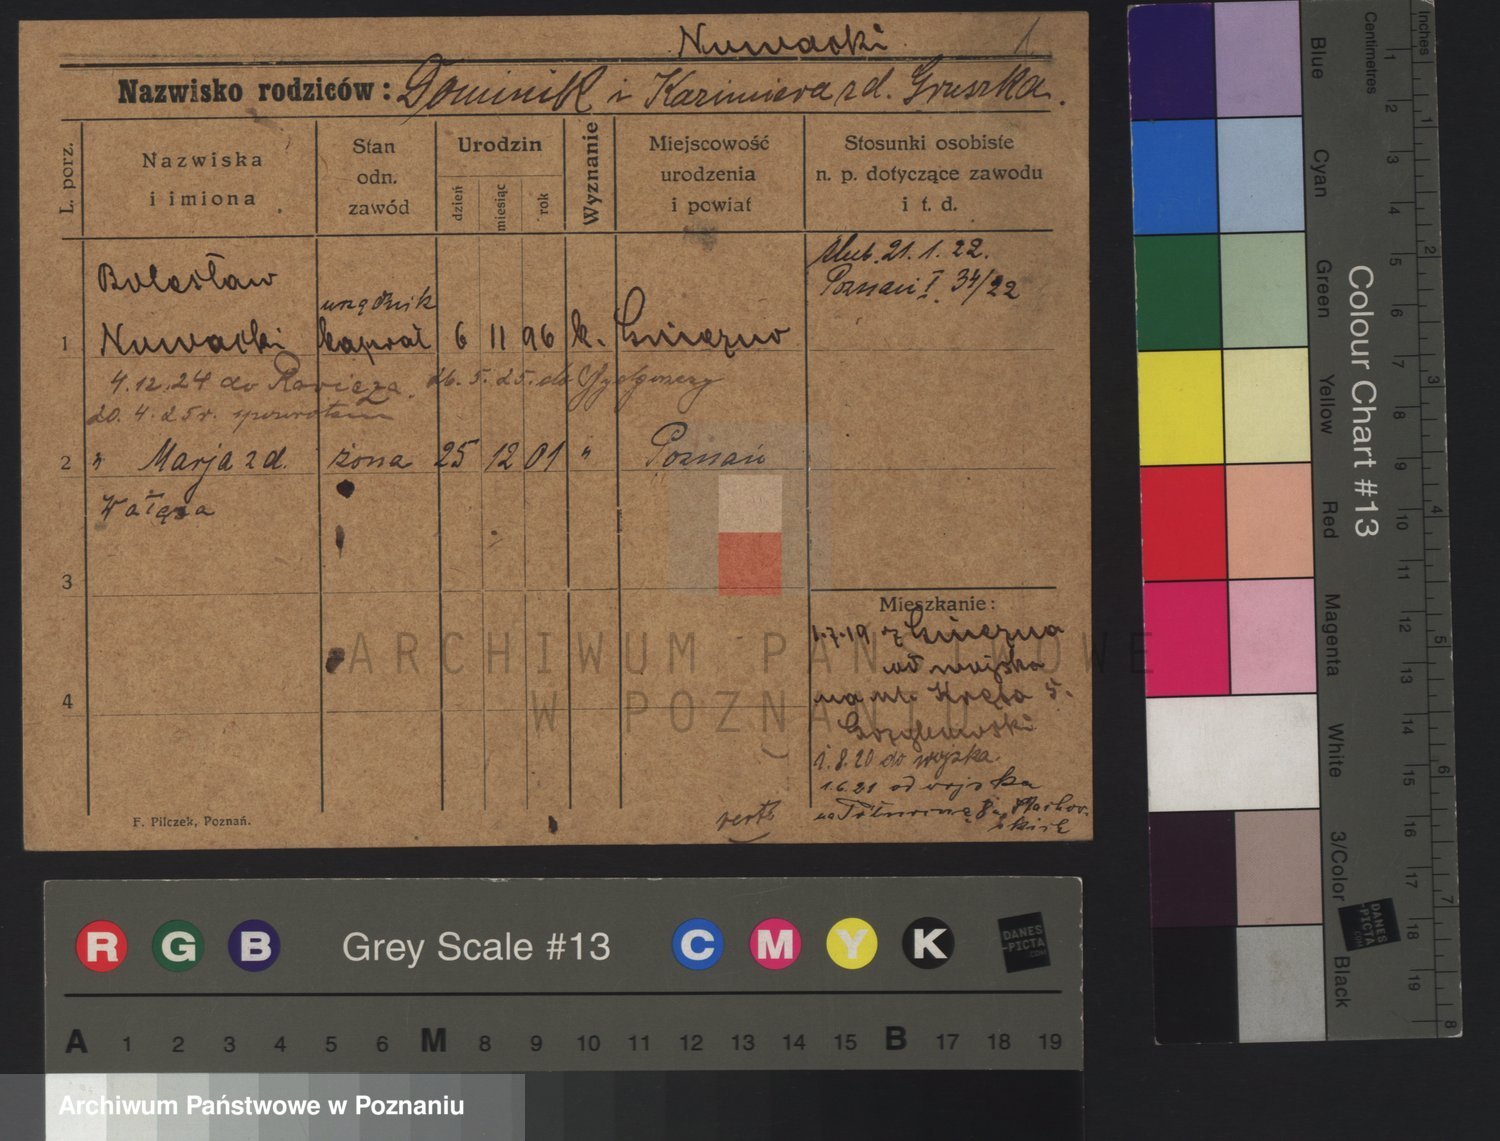 Nowacki 1.
Nazwisko rodziców: Dominik i Kazimiera z d. Gruszka.
L. porz.
Nazwiska i imiona
Stan odn. zawód
Urodzin
dzień
miesiąc
rok
Wyznanie
Miejscowość urodzenia i powiat
Stosunki osobiste n. p. dotyczące zawodu i t. d.
ślub. 21. 1. 22.
Poznań I. 34/22
Bolesław
urzędnik
1 Nowacki kapral 6 11 96 k. Gniezno
4.12.24 do Rawicza. 26. 5. 25. do Bydgoszczy
20. 4. 25 r. spowrotem
2 " Marja z d. żona 25 12 01 " Poznań
Wałęsa
3
Mieszkanie:
1.7.19 z Gniezna
od wojska
na ul. Kręta 5.
4
1.8.20 do wojska
1.6.21 od wojska
na Półwiejską 8
verte
F. Pilczek, Poznań.
ARCHIWUM PAŃSTWOWE
W POZNANIU
Inches
Centimetres
1 2 3 4 5 6 7 8 9 10 11 12 13 14 15 16 17 18 19
1 2 3 4 5 6 7 8
Colour Chart #13
Blue
Cyan
Green
Yellow
Red
Magenta
White
3/Color
Black
DANES
-PICTA
.COM
R G B Grey Scale #13 C M Y K
DANES
-PICTA
.COM
A 1 2 3 4 5 6 M 8 9 10 11 12 13 14 15 B 17 18 19
Archiwum Państwowe w Poznaniu